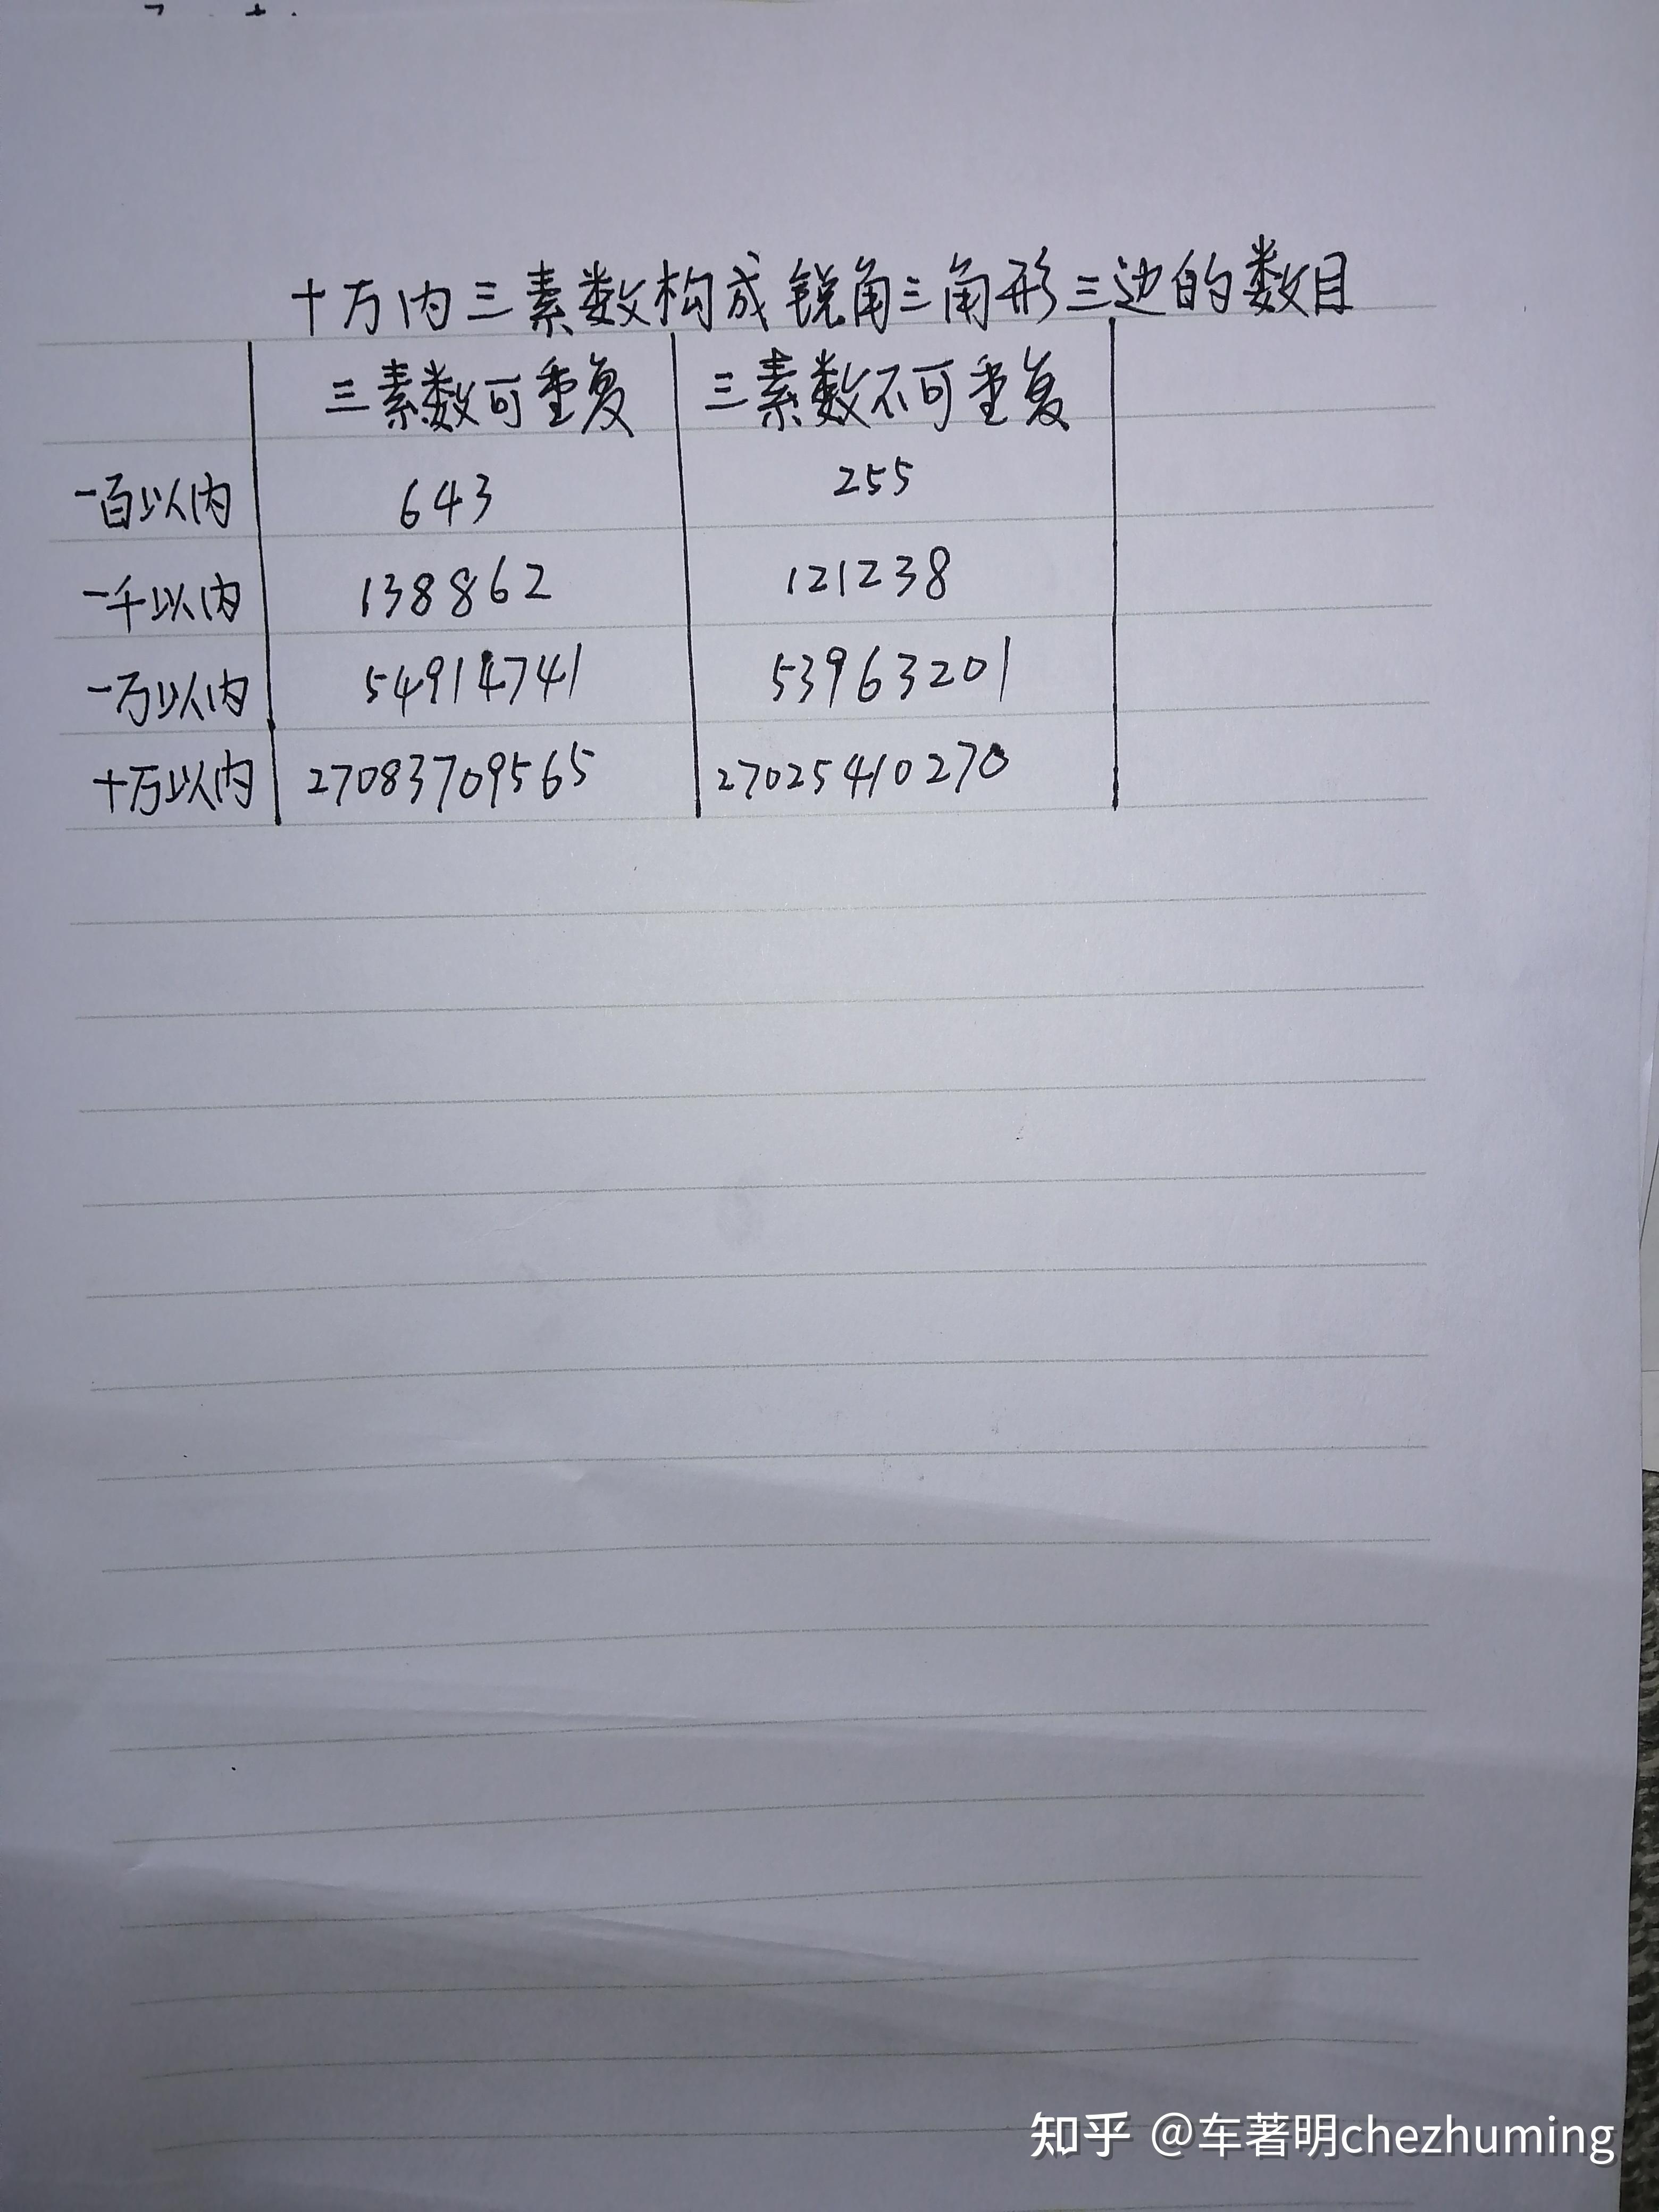 十万内三素数构成锐角三角形三边的数目
三素数可重复 三素数不可重复
一百以内 643 255
一千以内 138862 121238
一万以内 54914741 53963201
十万以内 27083709565 27025410270
知乎 @车著明chezhuming